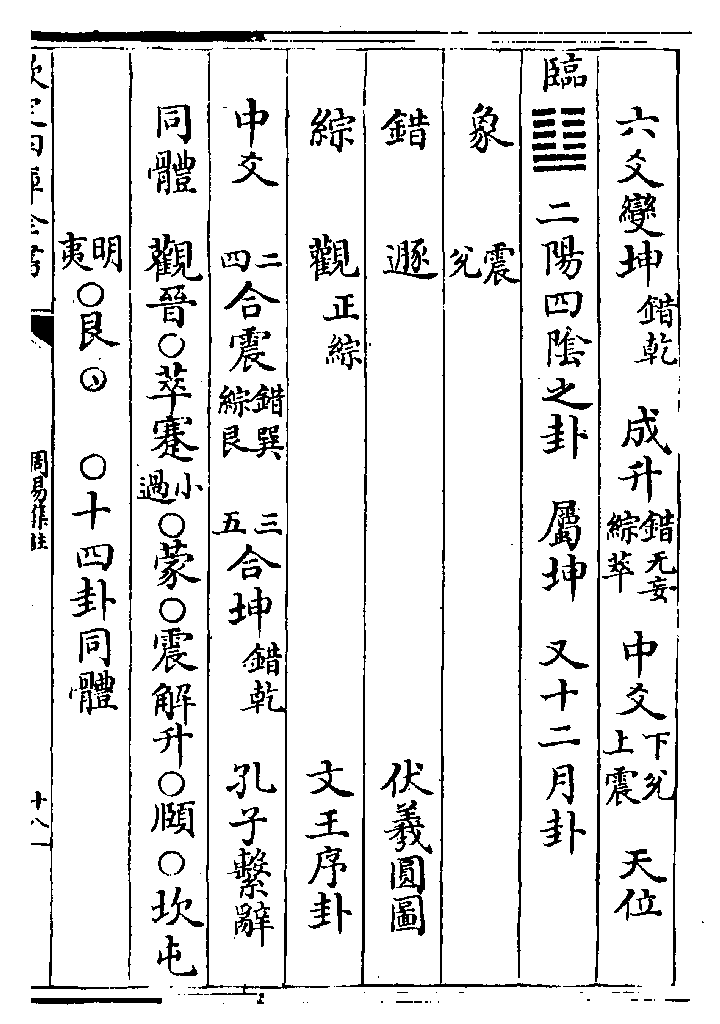 六爻變坤錯乾　成升錯无妄綜萃　中爻下兊上震　天位
臨䷒二陽四陰之卦　屬坤　又十二月卦
象　震兊
錯　遯　伏羲圓圖
綜　觀正綜　文王序卦
中爻　二四合震錯巽綜艮　三五合坤錯乾　孔子繫辭
同體　觀晉○萃蹇小過○蒙○震解升○頤○坎屯
明夷○艮○　○十四卦同體
欽定四庫全書
周易集註
十八